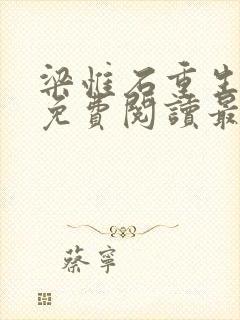 梁惟石重生
免費閱讀最
蔡寧